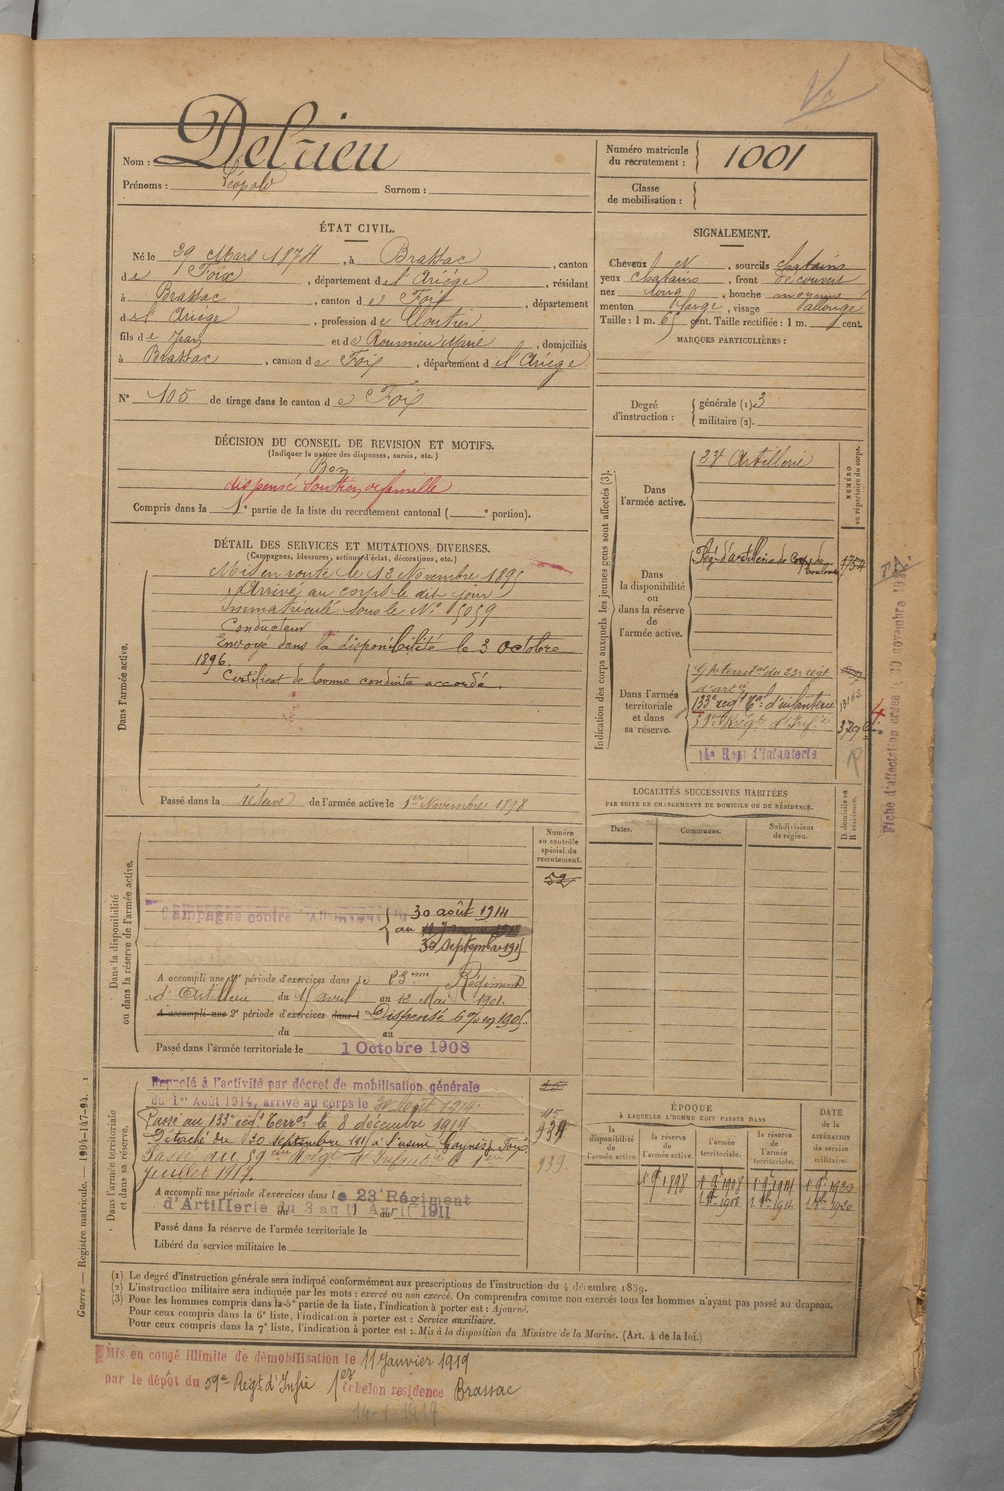 Nom : Delrieu
Prénoms : Léopold Surnom :
Numéro matricule du recrutement : 1001
Classe de mobilisation :
ÉTAT CIVIL.
Né le 29 Mars 1874, à Brassac, canton
de Foix, département de l'Ariége, résidant
à Brassac, canton de Foix, département
de l'Ariége, profession de Cloutier
fils de Jean et de Roumieu Marie, domiciliés
à Brassac, canton de Foix, département de l'Ariége
N° 105 de tirage dans le canton de Foix
SIGNALEMENT.
Cheveux N, sourcils chatains
yeux chatains, front découvert
nez long, bouche moyenne
menton large, visage allongé
Taille : 1 m. 65 cent. Taille rectifiée : 1 m. cent.
MARQUES PARTICULIÈRES :
Degré d'instruction : générale (1) 3
militaire (2).
DÉCISION DU CONSEIL DE REVISION ET MOTIFS.
(Indiquer la nature des dispenses, sursis, etc.)
Bon
dispensé soutien de famille
Compris dans la 1e partie de la liste du recrutement cantonal ( e portion).
DÉTAIL DES SERVICES ET MUTATIONS DIVERSES.
(Campagnes, blessures, actions d'éclat, décorations, etc.)
Dans l'armée active.
Mis en route le 12 Novembre 1895
Arrivé au corps le dit jour
Immatriculé sous le N°
Conducteur
Envoyé dans la disponibilité le 3 octobre
1896.
Certificat de bonne conduite accordé.
Passé dans la réserve de l'armée active le 1er Novembre 1898
Indication des corps auxquels les jeunes gens sont affectés (3).
NUMÉRO au répertoire du corps.
Dans l'armée active.
Artillerie
Dans la disponibilité ou dans la réserve de l'armée active.
Rég. d'artillerie de Corps de Toulouse 1754
Dans l'armée territoriale et dans sa réserve.
Gpe territal du 23e régt
d'artie
133e regt tal d'infanterie 13162
59e Régt d'Infie
14e Regt d'Infanterie
Fiche d'affectation créée 10 novembre
LOCALITÉS SUCCESSIVES HABITÉES
PAR SUITE DE CHANGEMENTS DE DOMICILE OU DE RÉSIDENCE.
Dates. Communes. Subdivisions de région. D domicile ou R résidence.
Numéro au contrôle spécial du recrutement.
52
Dans la disponibilité ou dans la réserve de l'armée active.
Campagne contre l'Allemagne du 30 août 1914
au
30 septembre 1915
A accompli une 1re période d'exercices dans le 23eme Régiment
d'Artillerie du 15 avril au 12 Mai 1901.
A accompli une 2e période d'exercices dans l Dispensé en 1905
du au
Passé dans l'armée territoriale le 1 Octobre 1908
Dans l'armée territoriale et dans sa réserve.
Rappelé à l'activité par décret de mobilisation générale
du 1er Août 1914, arrivé au corps le 30 Août 1914.
Passé au 133e régt Terral le 8 décembre 1914
Détaché du 30 septembre 1915 à l'usine Foix
Passé au 59eme Régt d'Infantie le 1er
juillet 1917.
A accompli une période d'exercices dans le 23e Régiment
d'Artillerie du 3 au 11 Avril 1911
Passé dans la réserve de l'armée territoriale le
Libéré du service militaire le
ÉPOQUE
À LAQUELLE L'HOMME DOIT PASSER DANS
la disponibilité de l'armée active. la réserve de l'armée active. l'armée territoriale. la réserve de l'armée territoriale.
DATE de la LIBÉRATION du service militaire.
(1) Le degré d'instruction générale sera indiqué conformément aux prescriptions de l'instruction du 4 décembre 1889.
(2) L'instruction militaire sera indiquée par les mots : exercé ou non exercé. On comprendra comme non exercés tous les hommes n'ayant pas passé au drapeau.
(3) Pour les hommes compris dans la 5e partie de la liste, l'indication à porter est : Ajourné.
Pour ceux compris dans la 6e liste, l'indication à porter est : Service auxiliaire.
Pour ceux compris dans la 7e liste, l'indication à porter est : Mis à la disposition du Ministre de la Marine. (Art. 4 de la loi.)
Guerre — Registre matricule. — 1904-147-94.
Mis en congé illimité de démobilisation le 11 Janvier 1919
par le dépôt du 59e Régt d'Infie 1er échelon résidence Brassac
14-1-1919